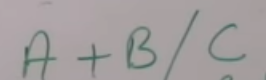 A + B / C